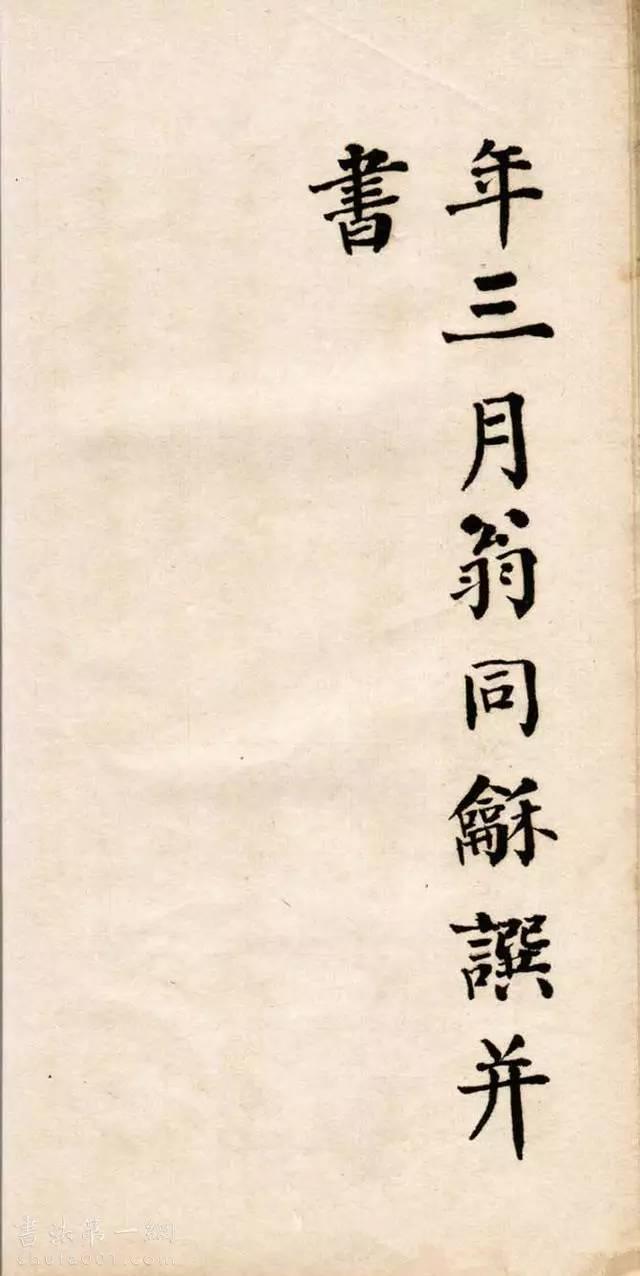 年三月翁同龢譔并
書
书法第一網
shufa001.com